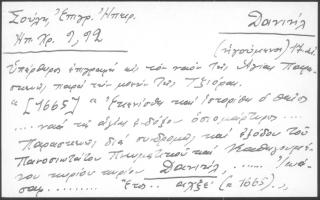 Σούλη, Ἐπιγρ. Ἠπειρ. Δανιήλ
Ἠπ. Χρ. 9, 92 (ἡγούμενος)
Ὑπέρθυρος ἐπιγραφὴ εἰς τὸν ναὸν τῆς Ἁγίας Παρα-
σκευῆς παρὰ τὴν μονὴν τῆς Τζιόρας.
"[1665] "Ἐκτίσθη καὶ ἱστορίθη ὁ θεῖος
... ναὸς τῆς ἁγίας ἐνδόξου ὁσιομάρτυρος ...
Παρασκευῆς διὰ συνδρομῆς καὶ ἐξόδου τοῦ
Πανοσιωτάτου Πνευματικοῦ καὶ Καθηγουμέ-
νου κυρίου κυρίου Δανιήλ ......
σαφ ......... Ἔτος .. αχξε´ (= 1665)..,